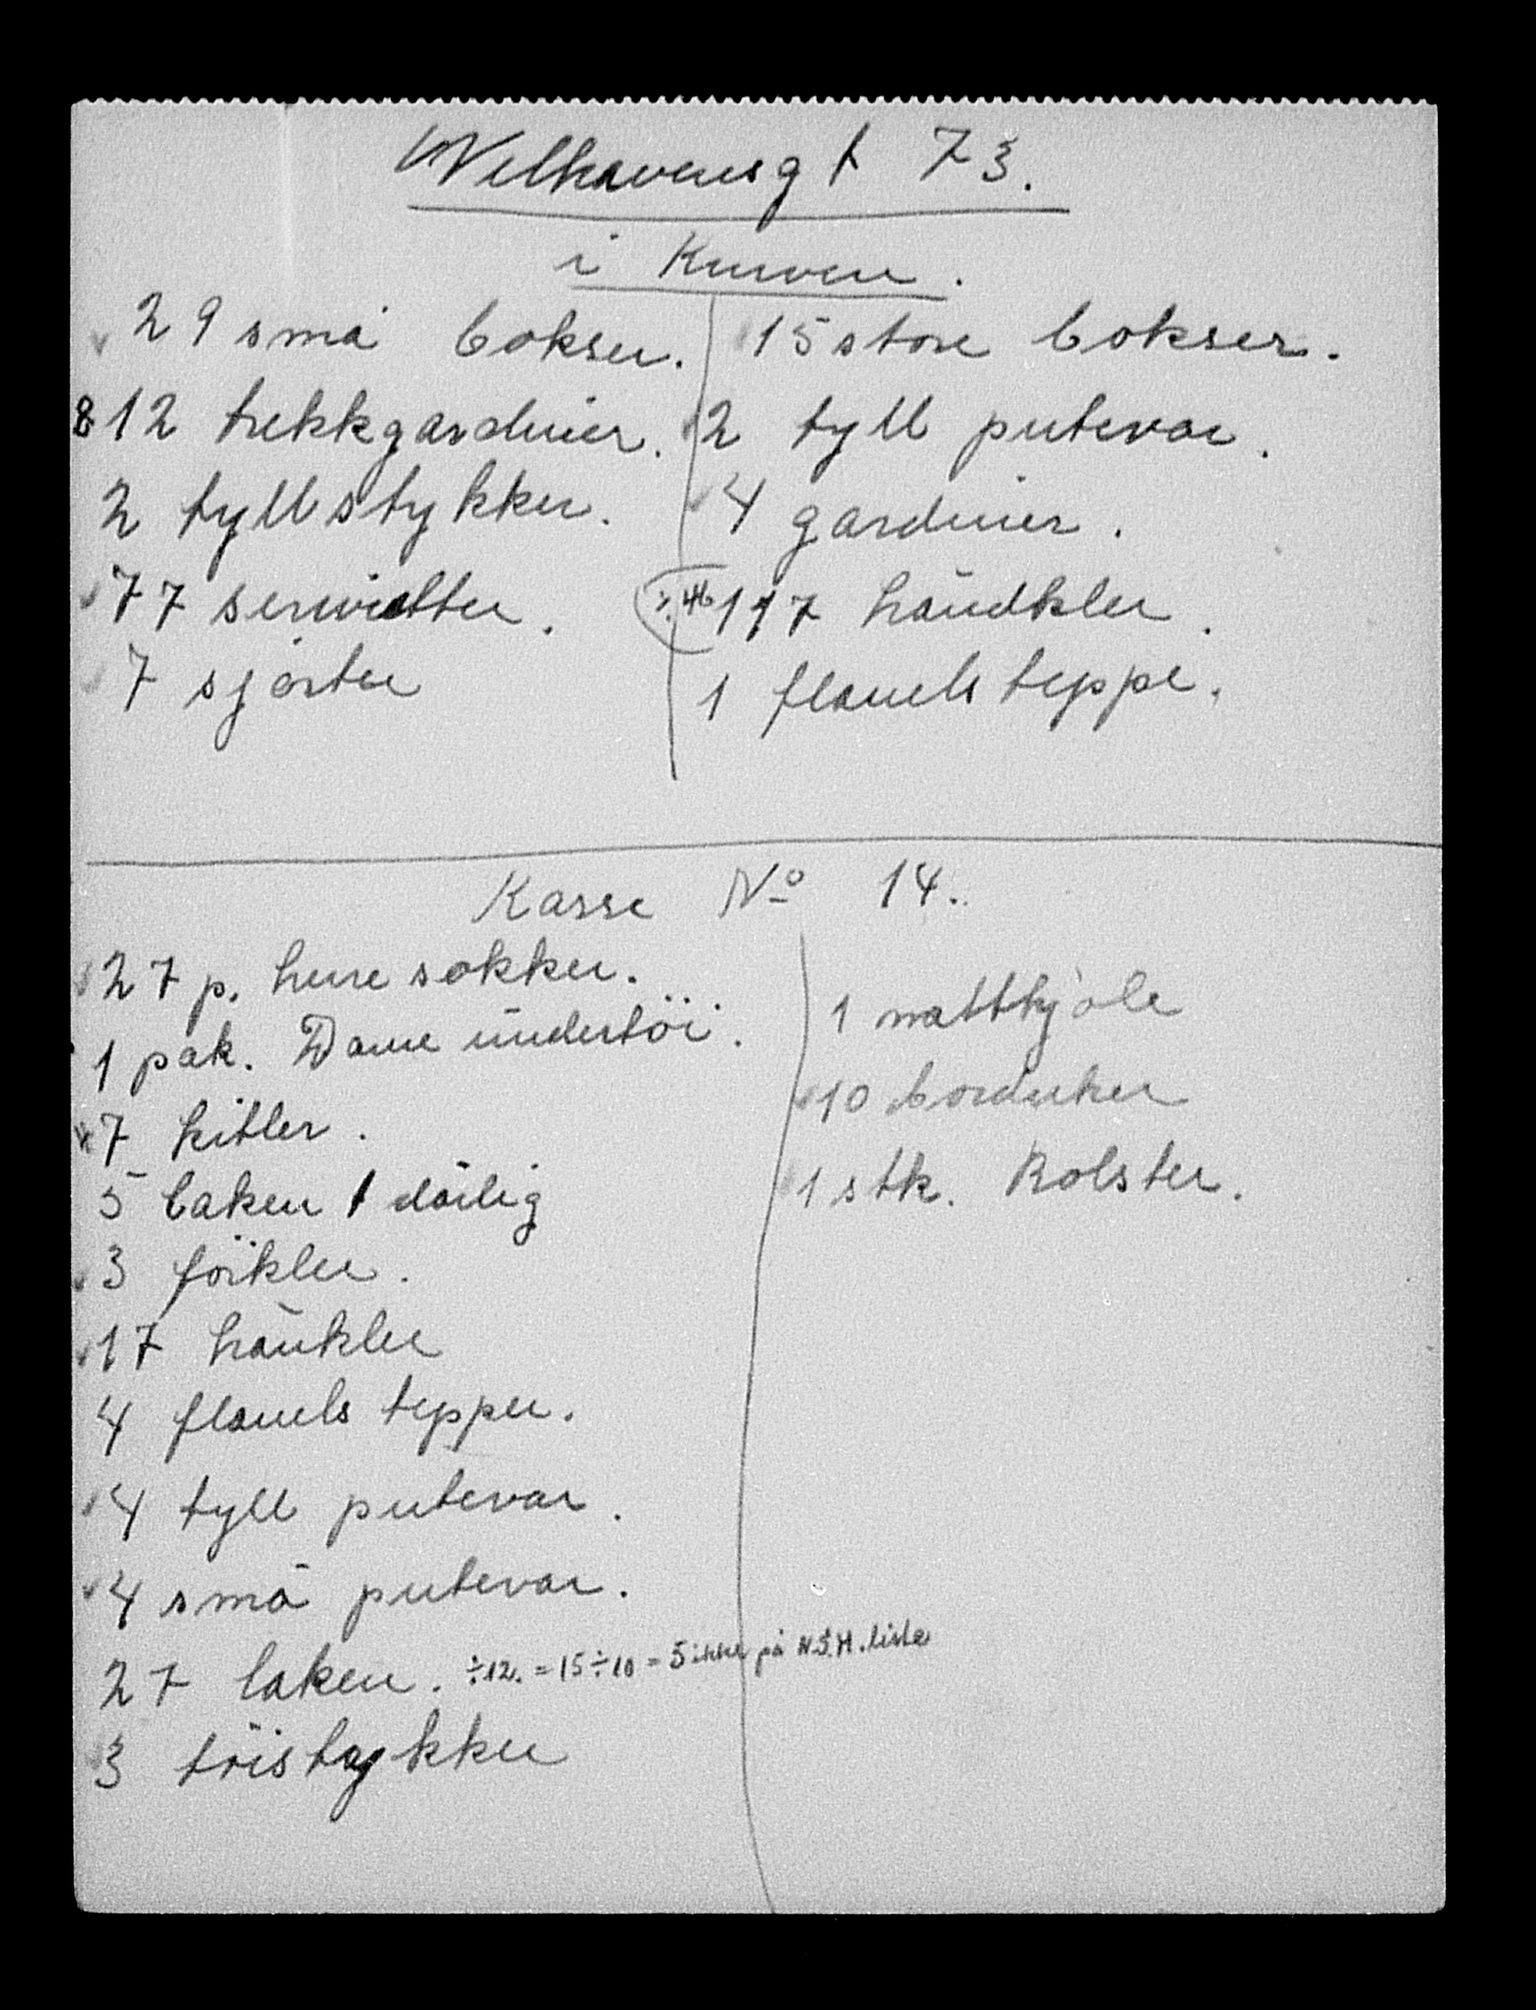 Welhavensgt 73.
i Kurven.
29 små bokser.
8 12 trekkgardiner.
2 tyllstykker.
77 servietter.
7 sjorter
15 store bokser.
2 tyll putevar.
4 gardiner.
46 117 håndkler.
1 flanels teppe.
Kasse No 14.
27 p. herre sokker.
1 pak. Dame undertöi.
7 kitler.
5 laken 1 dårlig
3 förkler.
17 hånkler
4 flanels tepper.
4 tyll putevar.
4 små putevar.
27 laken. ÷12. = 15 ÷ 10 = 5 ikke på N.S.H. liste
3 töistykker
1 nattkjole
10 borduker
1 stk. Bolster.